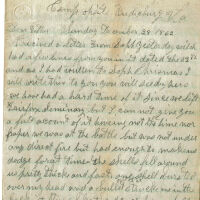 Camp near Fredricksburg Va
Dear Sister Monday December 28 1862
I received a letter from Soph yesterday which
had a few lines from you in it dated the 22nd
and as I had written to Soph Chrismas I
will write this to you you will see by hers
we have had a hard time of it since we left
Fairfax Seminar but I can not give you
a full account of it having not the time nor
paper we was at the battle but was not under
any direct fire but had enough to make us
dodge for a time the shells fell around
us pretty thick and fast one shell burst
over my head and a bullet struck me in the